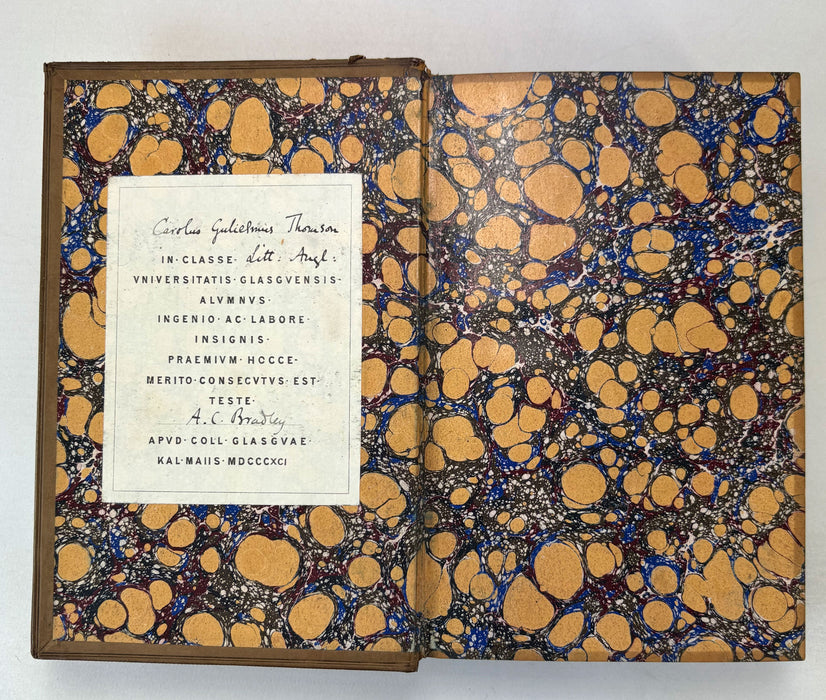 Carolus Gulielmus Thomson
IN · CLASSE · Litt : Angl :
VNIVERSITATIS · GLASGVENSIS ·
ALVMNVS ·
INGENIO · AC · LABORE ·
INSIGNIS ·
PRAEMIVM · HOCCE ·
MERITO · CONSECVTVS · EST ·
TESTE ·
A. C. Bradley
APVD · COLL · GLASGVAE ·
KAL · MAIIS · MDCCCXCI